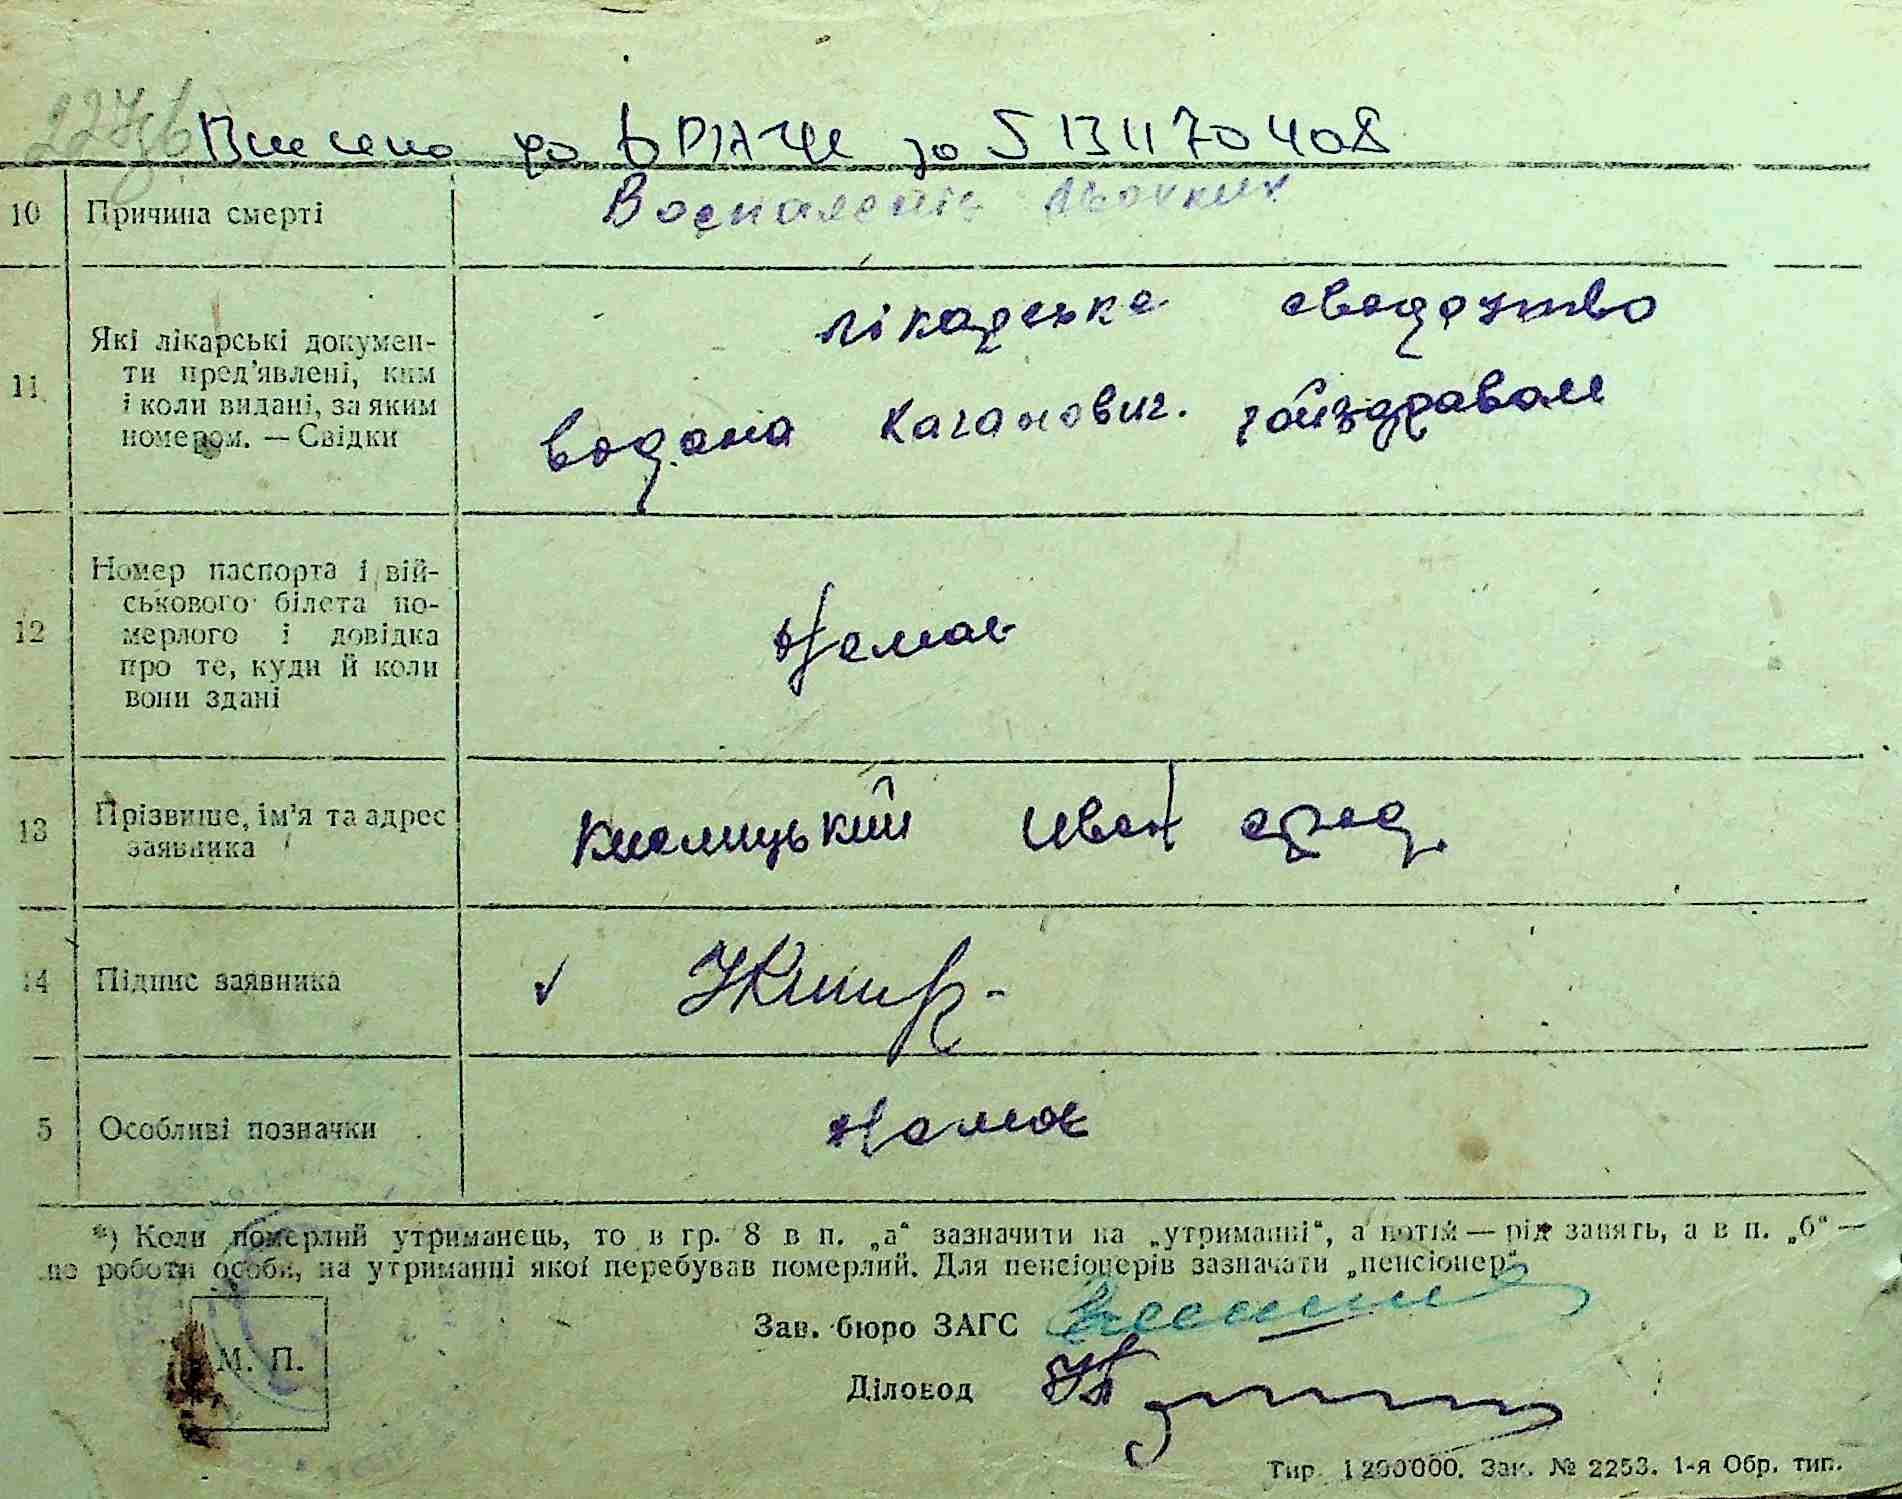 Внесено до ДРАЦС за 5131170408
10 Причина смерті Воспаленіє льогких
11 Які лікарські докумен-
ти пред'явлені, ким
і коли видані, за яким
номером. — Свідки
лікарське сведоцтво
видана Каганович. райздравом
12 Номер паспорта і вій-
ськового білета по-
мерлого і довідка
про те, куди й коли
вони здані
Немає
13 Прізвище, ім'я та адрес
заявника
Кислицький Иван
14 Підпис заявника
5 Особливі позначки Немає
*) Коли померлий утриманець, то в гр. 8 в п. „а“ зазначити на „утриманні“, а потім — рід занять, а в п. „б“ —
де роботи особи, на утриманні якої перебував померлий. Для пенсіонерів зазначати „пенсіонер“
Зав. бюро ЗАГС
М. П.
Діловод
Тир. 1200000. Зак. № 2253. 1-я Обр. тип.